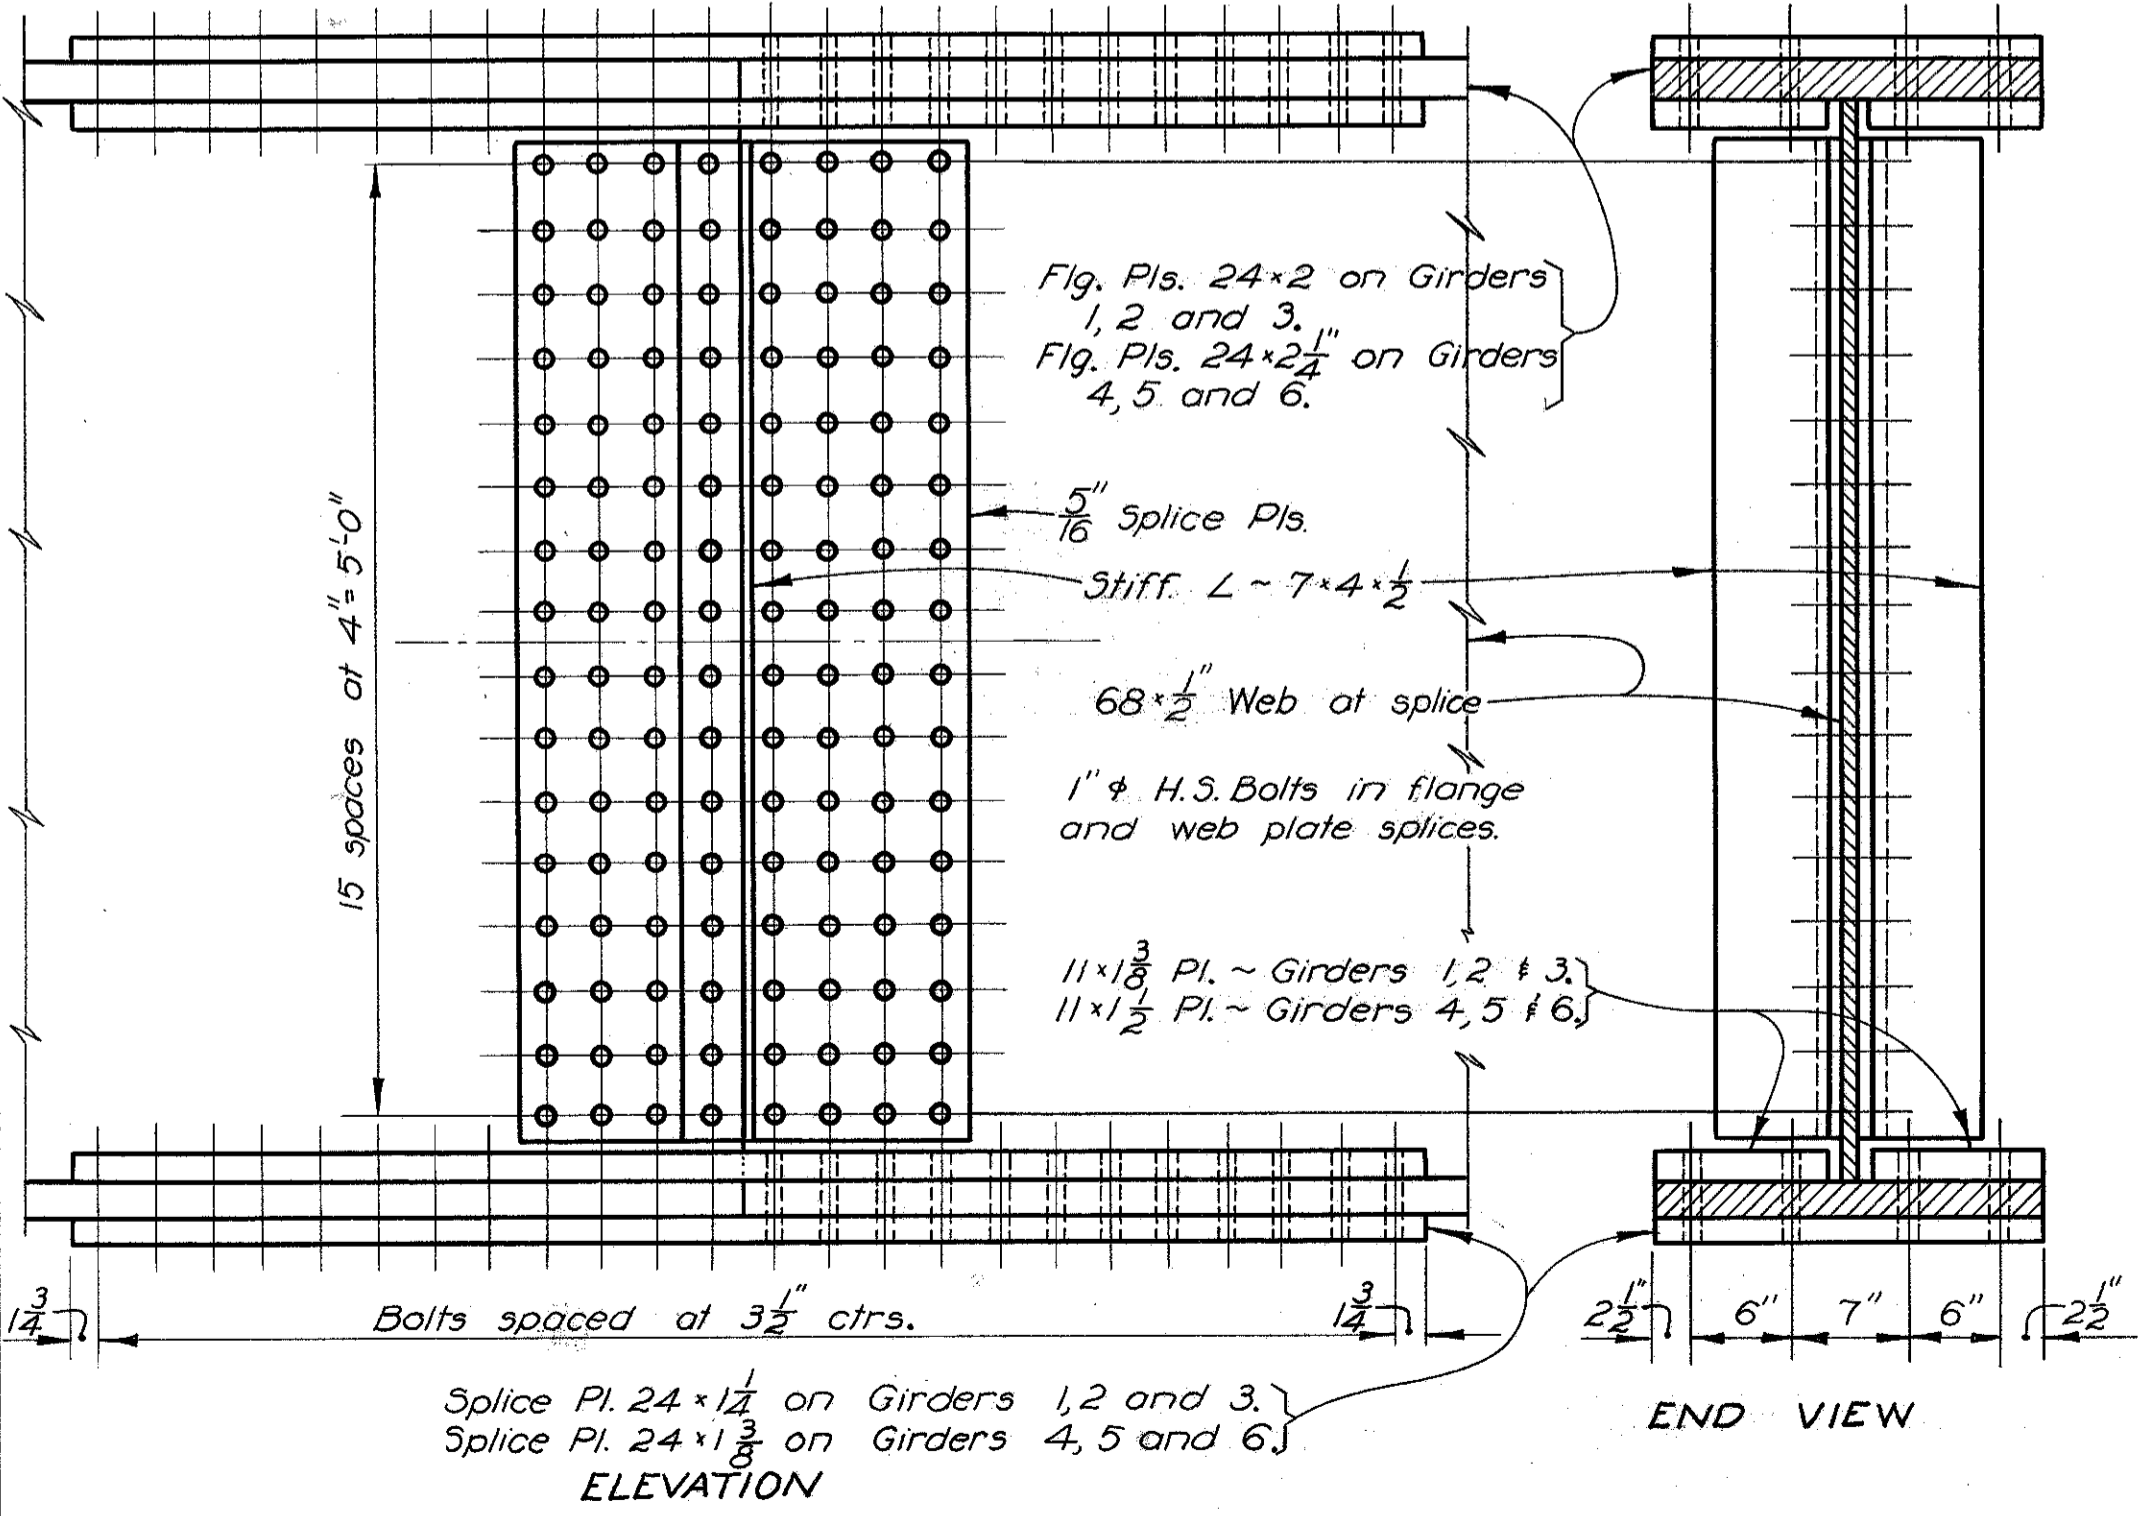 Flg. Pls. 24×2 on Girders
1, 2 and 3.
Flg. Pls. 24×2 1/4" on Girders
4, 5 and 6.
5/16" Splice Pls.
Stiff. ∠ ~ 7×4×1/2
68×1/2" Web at splice
1" ϕ H.S. Bolts in flange
and web plate splices.
15 spaces at 4" = 5'-0"
11×1 3/8 Pl. ~ Girders 1, 2 & 3.
11×1 1/2 Pl. ~ Girders 4, 5 & 6.
1 3/4
Bolts spaced at 3 1/2" ctrs.
1 3/4
2 1/2"
6"
7"
6"
2 1/2"
Splice Pl. 24×1 1/4 on Girders 1, 2 and 3.
Splice Pl. 24×1 3/8 on Girders 4, 5 and 6.
ELEVATION
END VIEW